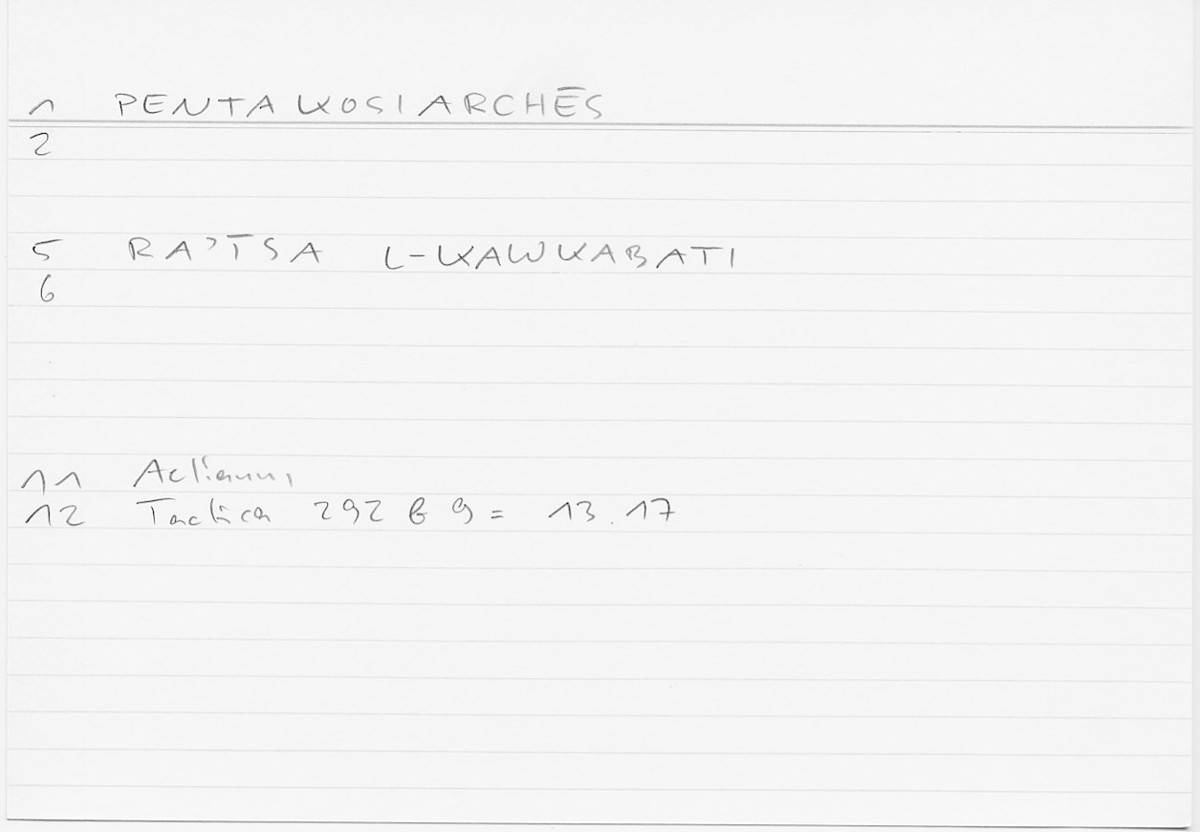 1 PENTAKOSIARCHĒS
2
5 RA’ĪSA L-KAWKABATI
6
11 Aelianus
12 Tactica 292 b 9 = 13.17